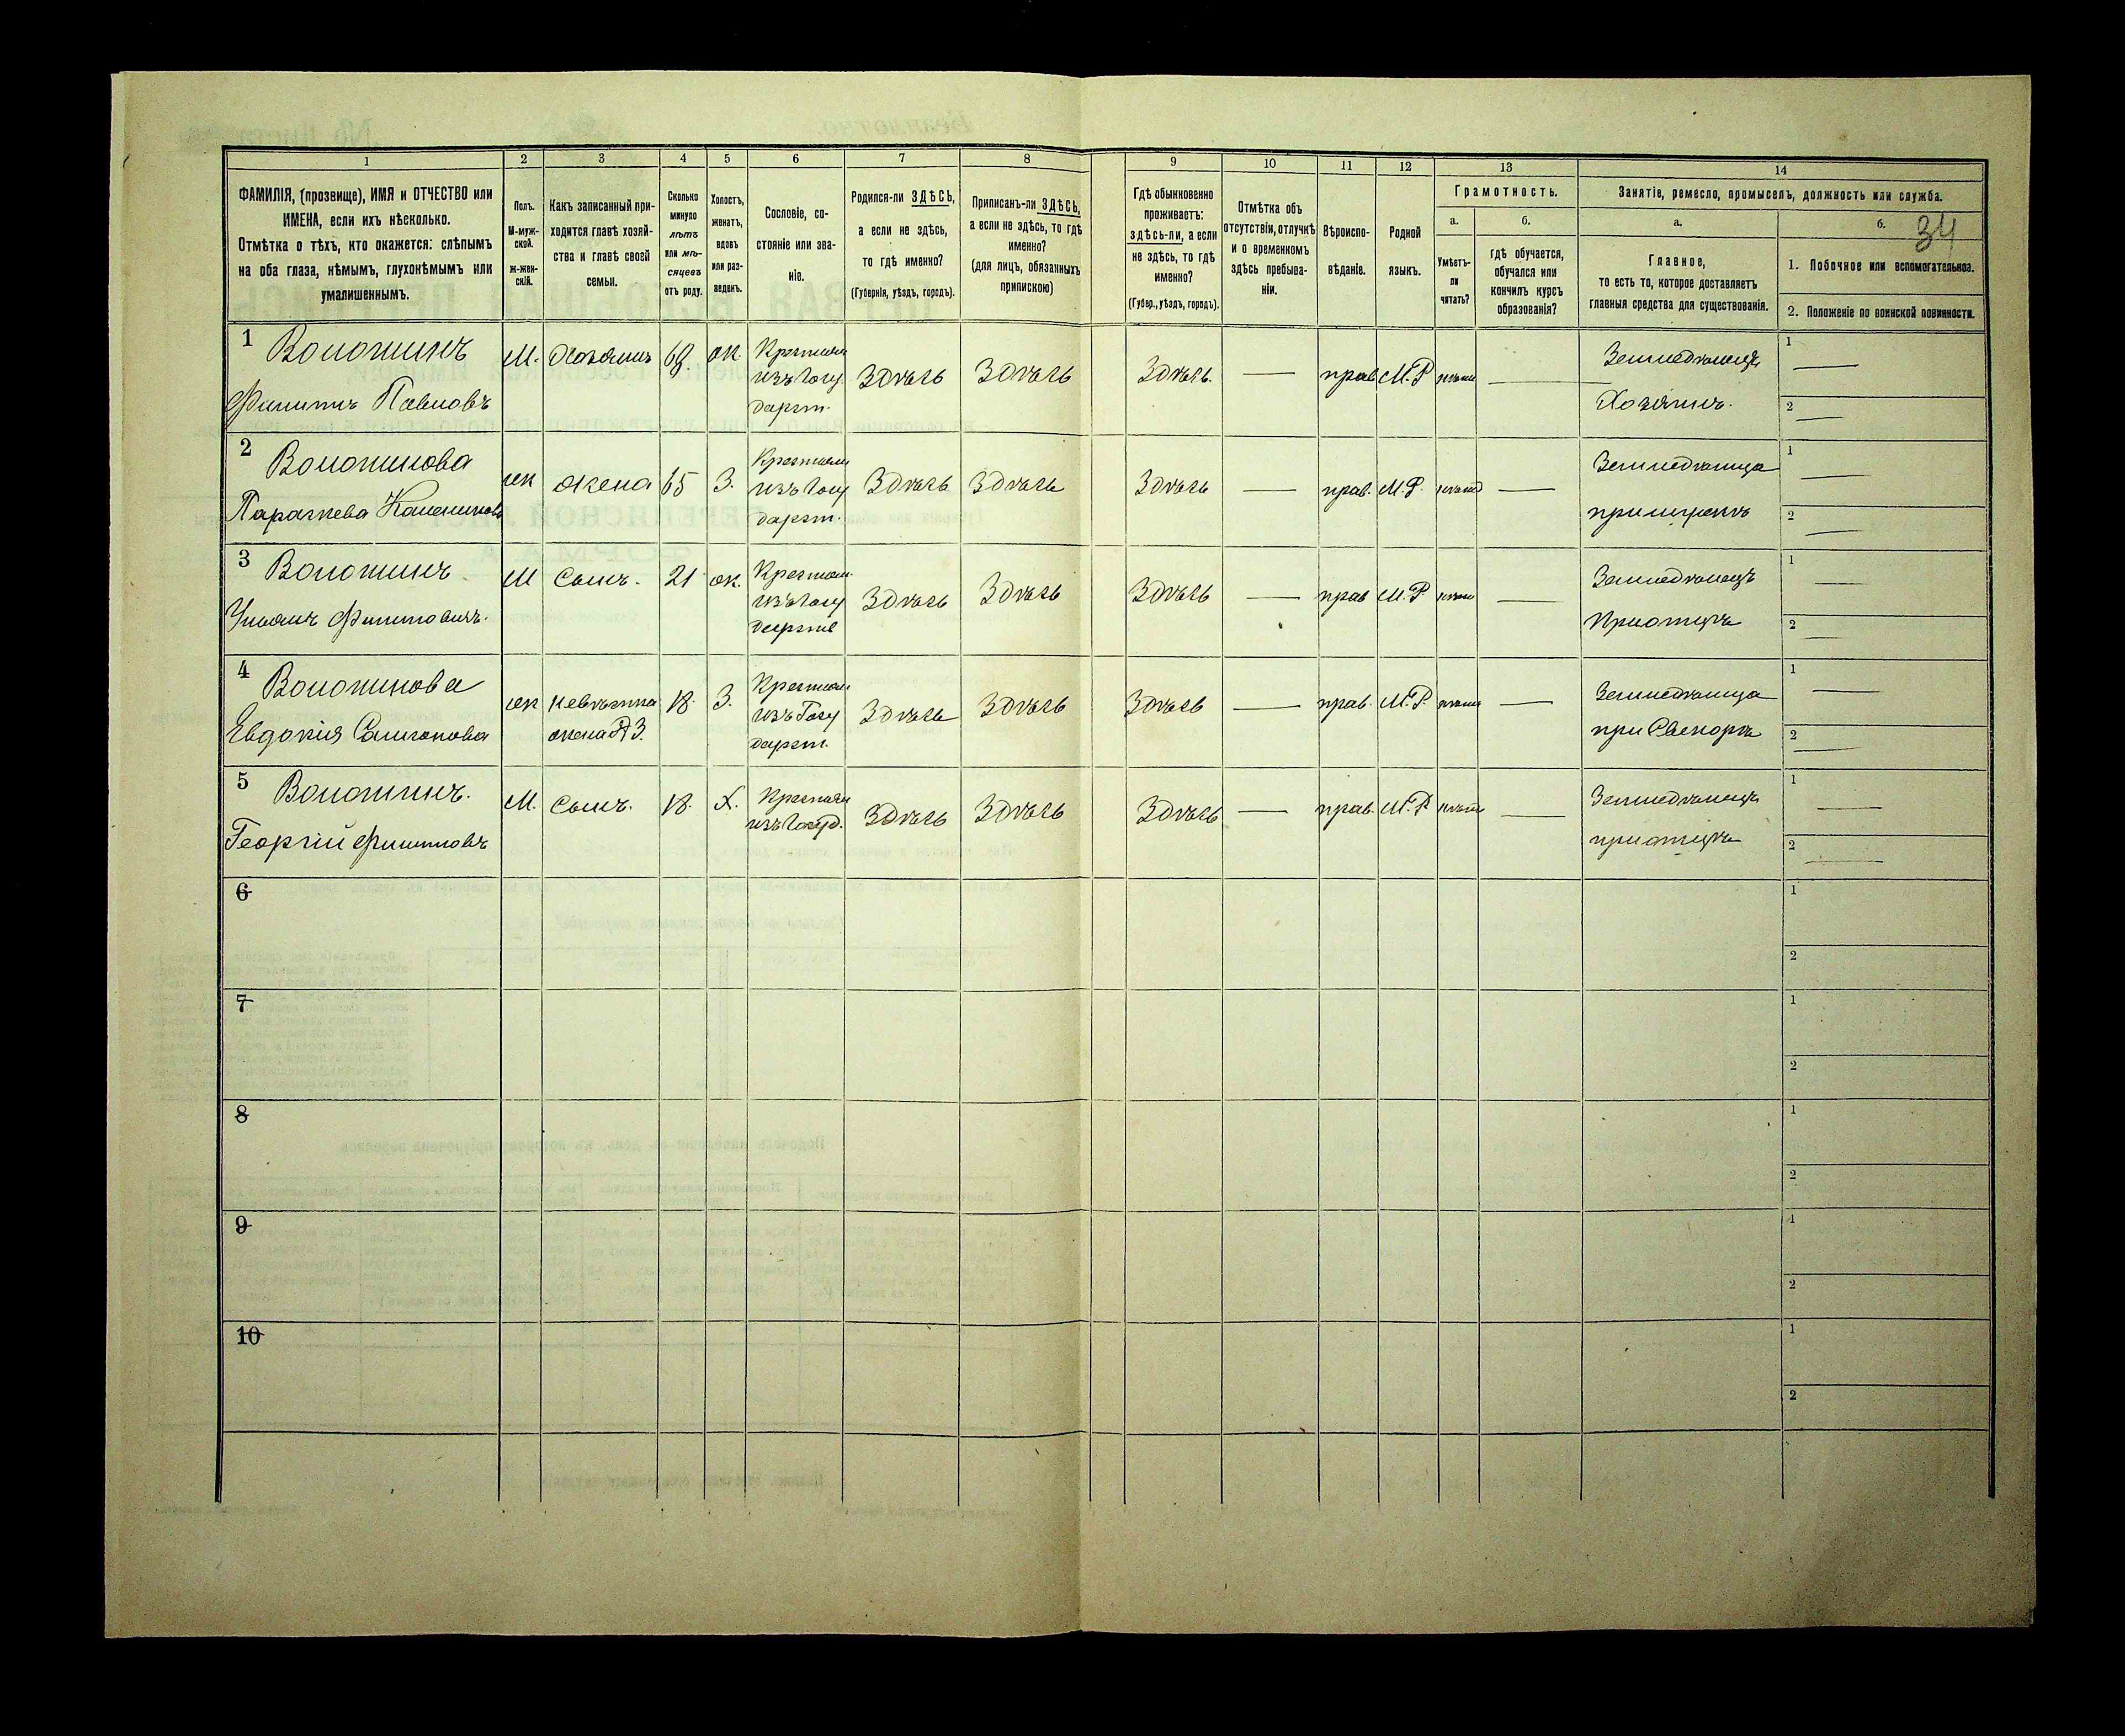 34
1 2 3 4 5 6 7 8 9 10 11 12 13 14
ФАМИЛІЯ, (прозвище), ИМЯ и ОТЧЕСТВО или
ИМЕНА, если ихъ нѣсколько.
Отмѣтка о тѣхъ, кто окажется: слѣпымъ
на оба глаза, нѣмымъ, глухонѣмымъ или
умалишеннымъ.
Полъ.
М-муж-
ской.
ж-жен-
скій.
Какъ записанный при-
ходится главѣ хозяй-
ства и главѣ своей
семьи.
Сколько
минуло
лѣтъ
или мѣ-
сяцевъ
отъ роду.
Холостъ,
женатъ,
вдовъ
или раз-
веденъ.
Сословіе, со-
стояніе или зва-
ніе.
Родился-ли ЗДѢСЬ,
а если не здѣсь,
то гдѣ именно?
(Губернія, уѣздъ, городъ).
Приписанъ-ли ЗДѢСЬ,
а если не здѣсь, то гдѣ
именно?
(для лицъ, обязанныхъ
припискою)
Гдѣ обыкновенно
проживаетъ:
здѣсь-ли, а если
не здѣсь, то гдѣ
именно?
(Губер., уѣздъ, городъ).
Отмѣтка объ
отсутствіи, отлучкѣ
и о временномъ
здѣсь пребыва-
ніи.
Вѣроиспо-
вѣданіе.
Родной
языкъ.
Грамотность.
а.
Умѣетъ-
ли
читать?
б.
гдѣ обучается,
обучался или
кончилъ курсъ
образованія?
Занятіе, ремесло, промыселъ, должность или служба.
а.
Главное,
то есть то, которое доставляетъ
главныя средства для существованія.
б.
1. Побочное или вспомогательное.
2. Положеніе по воинской повинности.
1 Волошинъ
Филипъ Павловъ
М. Хозяинъ 69. ж.
Крестьян
изъ Госу
дарст.
Здѣсь Здѣсь Здѣсь. — прав М.Р нѣтъ —
Земледѣлецъ
Хозяинъ.
1 —
2 —
2 Волошинова
Параскева
ж жена 65 З.
Крестьян
изъ Госу
дарст.
Здѣсь Здѣсь Здѣсь — прав. М.Р. нѣтъ —
Земледѣлица
примужѣ
1 —
2 —
3 Волошинъ
Ульянъ Филиповичъ.
М Сынъ. 21 ж.
Крестьян
изъ Госу
дарств
Здѣсь Здѣсь Здѣсь — прав М.Р нѣтъ —
Земледѣлецъ
Приотцѣ
1 —
2 —
4 Волошинова
Евдокія Самсонова
ж невѣстка
жена №3.
18. З.
Крестьян
изъ Госу
дарст.
Здѣсь Здѣсь Здѣсь — прав. М.Р. нѣтъ —
Земледѣлица
при Свекорѣ
1 —
2 —
5 Волошинъ.
Георгій Филиповъ
М. Сынъ. 18. Х.
Крестьян
изъ Госуд.
Здѣсь Здѣсь Здѣсь — прав. М.Р нѣтъ —
Земледѣлецъ
приотцѣ
1 —
2 —
6 1
2
7 1
2
8 1
2
9 1
2
10 1
2